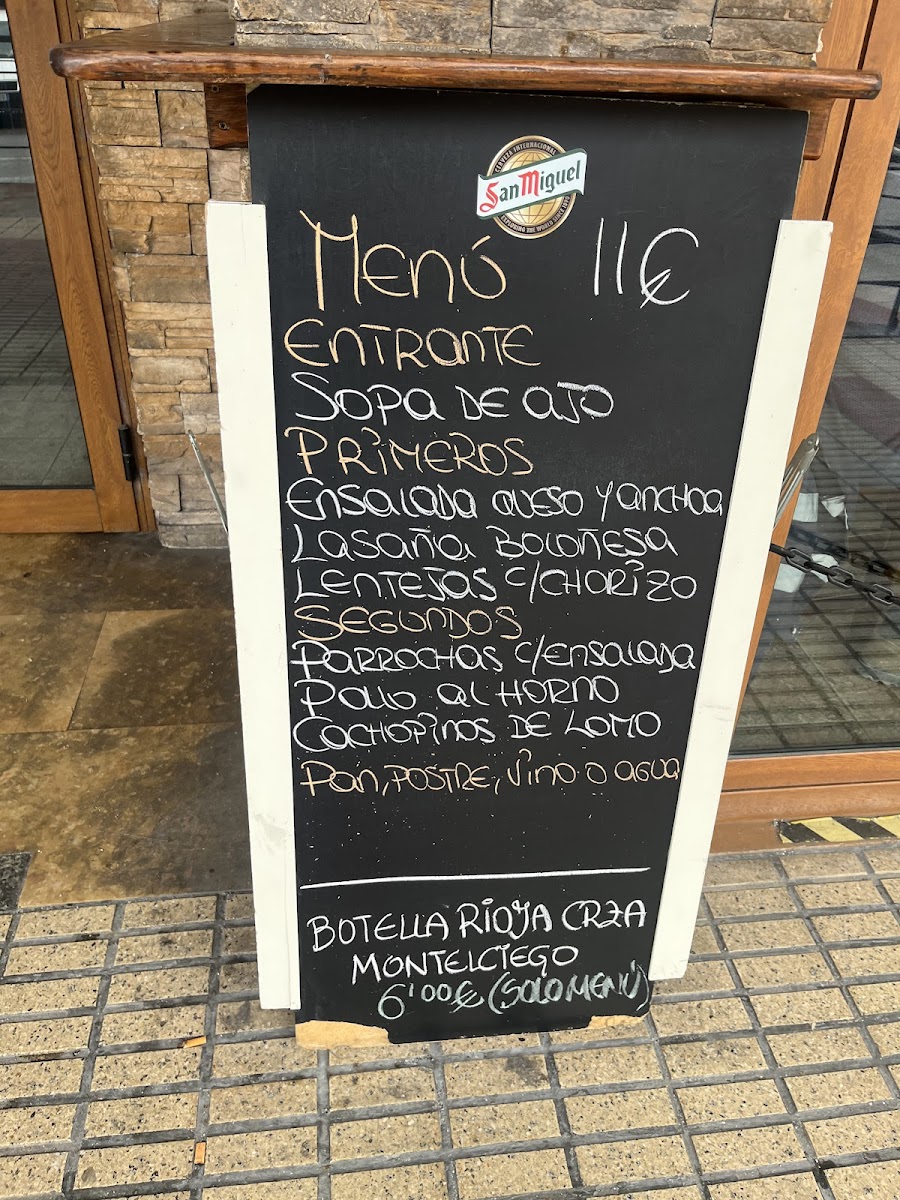 CERVEZA INTERNACIONAL
San Miguel
EXPLORING THE WORLD SINCE 1890
Menú 11€
ENTRANTE
SOPA DE AJO
PRIMEROS
ENSALADA QUESO Y ANCHOA
LASAÑA BOLOÑESA
LENTEJAS C/CHORIZO
SEGUNDOS
PARROCHAS C/ENSALADA
POLLO AL HORNO
CACHOPINOS DE LOMO
PAN, POSTRE, VINO O AGUA
BOTELLA RIOJA CRZA
MONTELCIEGO
6'00€ (SOLO MENÚ)